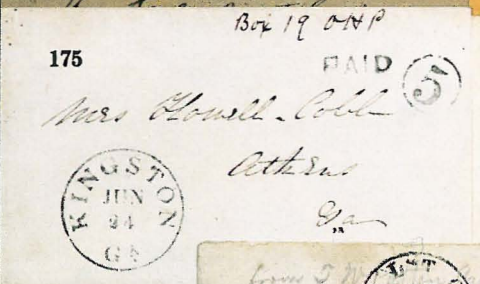 Box 19 OHP
175
PAID 5
Mrs Howell Cobb
Athens
Ga
KINGSTON
JUN
24
GA